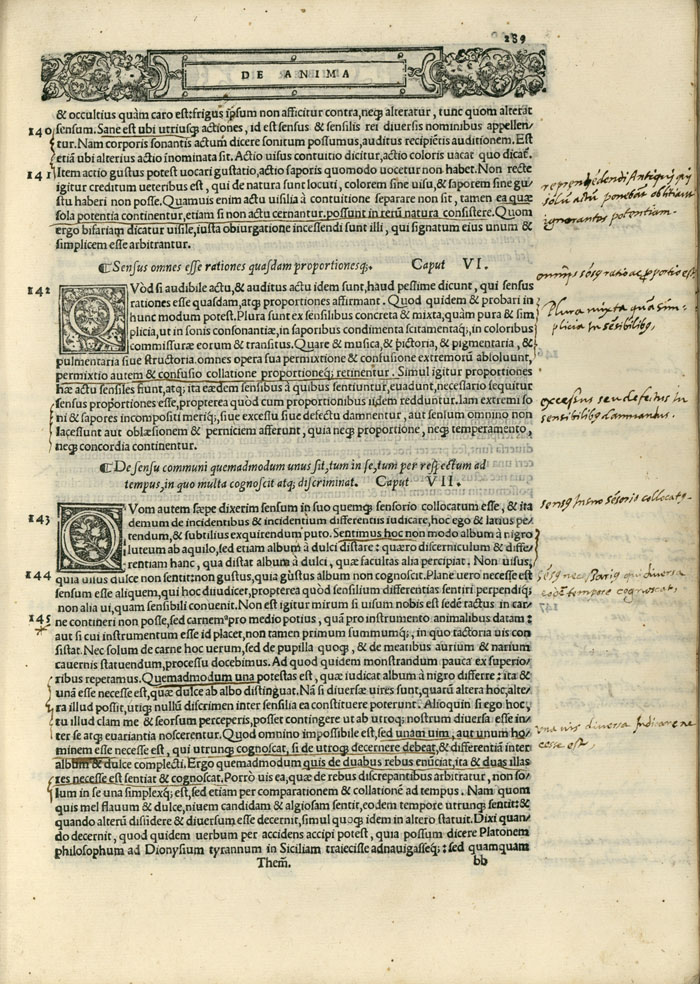 289
DE ANIMA
& occultius quàm caro est: frigus ipsum non afficitur contra, neq; alteratur, tunc quom alterāt
140 sensum. Sane est ubi utriusq; actiones, id est sensus & sensilis rei diversis nominibus appellen/
tur. Nam corporis sonantis actum dicere sonitum possumus, auditus recipiētis auditionem. Est
etiā ubi alterius actio inominata sit. Actio uisus contuitio dicitur, actio coloris uacat quo dicat.
141 Item actio gustus potest uocari gustatio, actio saporis quomodo uocetur non habet. Non recte
igitur creditum ueteribus est, qui de natura sunt locuti, colorem sine uisu, & saporem sine gu/
stu haberi non posse. Quamuis enim actu uisilia à contuitione separare non sit, tamen ea quæ
sola potentia continentur, etiam si non actu cernantur, possunt in rerū natura consistere. Quom
ergo bifariam dicatur uisile, iusta obiurgatione incessendi sunt illi, qui signatum eius unum &
simplicem esse arbitrantur.
reprendi Antiqui qui
solū actū ponebāt obliti aut
ignorantes potentiam.
¶ Sensus omnes esse rationes quasdam proportionesq;. Caput VI.
omnis sēsq ratio ac proportio est
142 QVòd si audibile actu, & auditus actu idem sunt, haud pessime dicunt, qui sensus
rationes esse quasdam, atq; proportiones affirmant. Quod quidem & probari in
hunc modum potest. Plura sunt ex sensilibus concreta & mixta, quàm pura & sim
plicia, ut in sonis consonantiæ, in saporibus condimenta scitamentaq;, in coloribus
commissuræ eorum & transitus. Quare & musica, & pictoria, & pigmentaria, &
pulmentaria siue structoria. omnes opera sua permixtione & confusione extremorū absoluunt,
permixtio autem & confusio collatione proportioneq; retinentur. Simul igitur proportiones
hæ actu sensiles fiunt, atq; ita eædem sensibus à quibus sentiuntur, euadunt, necessario sequitur
sensus proportiones esse, propterea quòd cum proportionibus iidem redduntur. Iam extremi so
ni & sapores incompositi meriq;, siue excessu siue defectu damnentur, aut sensum omnino non
lacessunt aut oblæsionem & perniciem afferunt, quia neq; proportione, neq; temperamento,
neq; concordia continentur.
Plura mixta quā sim-
plicia in sēsibilibq,
excessus seu defectus in
sensibilibq damnantur.
¶ De sensu communi quemadmodum unus sit, tum in se, tum per respectum ad
tempus, in quo multa cognoscit atq; discriminat. Caput VII.
143 QVom autem sæpe dixerim sensum in suo quemq; sensorio collocatum esse, & ita
demum de incidentibus & incidentium differentiis iudicare, hoc ego & latius pe/
tendum, & subtilius exquirendum puto. Sentimus hoc non modo album à nigro
luteum ab aquilo, sed etiam album à dulci distare: quæro discerniculum & diffe/
rentiam hanc, qua distat album à dulci, quæ facultas alia percipiat. Non uisus,
144 quia uisus dulce non sentit: non gustus, quia gustus album non cognoscit. Plane uero necesse est
sensum esse aliquem, qui hoc diiudicet, propterea quòd sensilium differentias sentiri perpendiq;
non alia ui, quam sensibili conuenit. Non est igitur mirum si uisum nobis est sedē tactus in car/
145 ne contineri non posse, sed carnem pro medio potius, quā pro instrumento animalibus datam:
aut si cui instrumentum esse id placet, non tamen primum summumq;, in quo tactoria uis con
sistat. Nec solum de carne hoc uerum, sed de pupilla quoq;, & de meatibus aurium & narium
cauernis statuendum, processu docebimus. Ad quod quidem monstrandum pauca ex superio/
ribus repetamus. Quemadmodum una potestas est, quæ iudicat album à nigro differre: ita &
unā esse necesse est, quæ dulce ab albo distinguat. Nā si diuersæ uires sunt, quarū altera hoc, alte/
ra illud possit, utiq; nullū discrimen inter sensilia ea constituere poterunt. Alioquin si ego hoc,
tu illud clam me & seorsum perceperis, posset contingere ut ab utroq; nostrum diuersa esse in/
ter se atq; euariantia noscerentur. Quod omnino impossibile est, sed unam uim, aut unum ho/
minem esse necesse est, qui utrunq; cognoscat, si de utroq; decernere debeat, & differentiā inter
album & dulce complecti. Ergo quemadmodum quis de duabus rebus enūciat, ita & duas illas
res necesse est sentiat & cognoscat. Porrò uis ea, quæ de rebus discrepantibus arbitratur, non so/
lum in se una simplexq; est, sed etiam per comparationem & collationē ad tempus. Nam quom
quis mel flauum & dulce, niuem candidam & algiosam sentit, eodem tempore utrunq; sentit: &
quando alterū dissidere & diuersum esse decernit, simul quoq; idem in altero statuit. Dixi quan/
do decernit, quod quidem uerbum per accidens accipi potest, quia possum dicere Platonem
philosophum ad Dionysium tyrannum in Siciliam traiecisse adnauigasseq;: sed quamquam
sensq in suo sēsorio collocatq.
sēsq necessariq qui diuersa
eodē tempore cognoscat,
una uis diuersa Iudicare ne
cesse est,
Them. bb